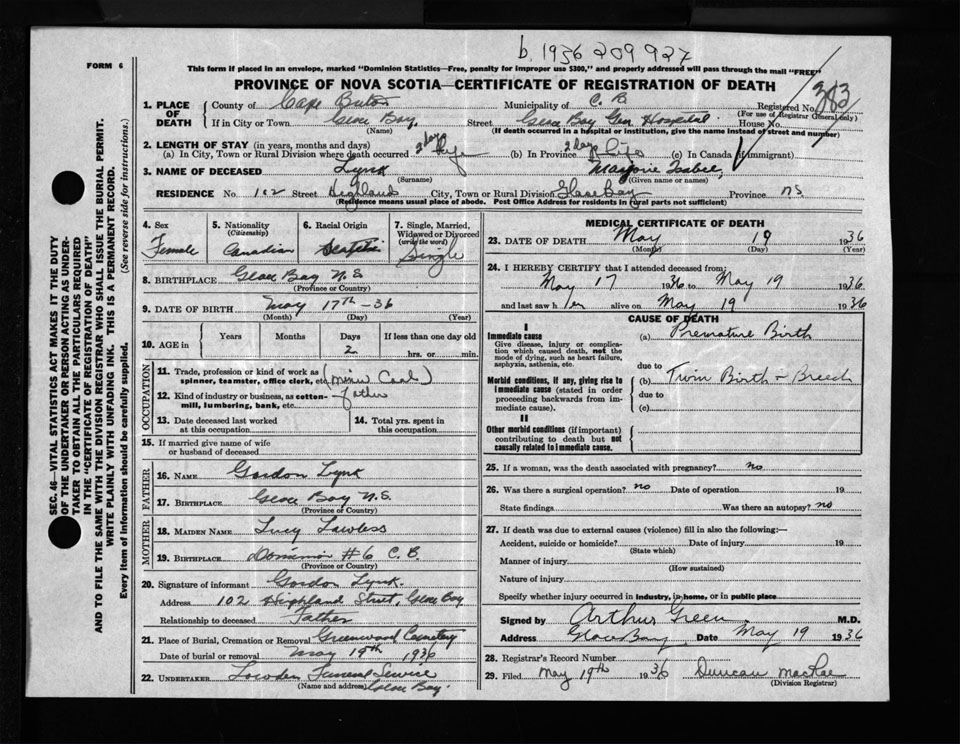 b. 1936 209927
FORM 6
This form if placed in an envelope, marked "Dominion Statistics—Free, penalty for improper use $300," and properly addressed will pass through the mail "FREE"
PROVINCE OF NOVA SCOTIA—CERTIFICATE OF REGISTRATION OF DEATH
SEC. 46—VITAL STATISTICS ACT MAKES IT THE DUTY
OF THE UNDERTAKER OR PERSON ACTING AS UNDER-
TAKER TO OBTAIN ALL THE PARTICULARS REQUIRED
IN THE "CERTIFICATE OF REGISTRATION OF DEATH"
AND TO FILE THE SAME WITH THE DIVISION REGISTRAR WHO SHALL ISSUE THE BURIAL PERMIT.
WRITE PLAINLY WITH UNFADING INK. THIS IS A PERMANENT RECORD.
Every item of information should be carefully supplied. (See reverse side for instructions.)
1. PLACE OF DEATH County of Cape Breton Municipality of C. B. Registered No. 383
(For use of Registrar General only)
If in City or Town Glace Bay Street Glace Bay Gen Hospital House No.
(Name) (If death occurred in a hospital or institution, give the name instead of street and number)
2. LENGTH OF STAY (in years, months and days)
(a) In City, Town or Rural Division where death occurred 2 days Life (b) In Province 2 days Life (c) In Canada (if immigrant)
3. NAME OF DECEASED Lynk Marjorie Isabel
(Surname) (Given name or names)
RESIDENCE No. 102 Street Highland City, Town or Rural Division Glace Bay Province NS
(Residence means usual place of abode. Post Office Address for residents in rural parts not sufficient)
4. Sex Female
5. Nationality (Citizenship) Canadian
6. Racial Origin
7. Single, Married, Widowed or Divorced (write the word) Single
8. BIRTHPLACE Glace Bay N.S
(Province or Country)
9. DATE OF BIRTH May 17th - 36
(Month) (Day) (Year)
10. AGE in Years Months Days 2 If less than one day old
hrs. or min.
OCCUPATION
11. Trade, profession or kind of work as spinner, teamster, office clerk, etc.
12. Kind of industry or business, as cotton-mill, lumbering, bank, etc. father
13. Date deceased last worked at this occupation
14. Total yrs. spent in this occupation
15. If married give name of wife or husband of deceased
FATHER
16. NAME Gordon Lynk
17. BIRTHPLACE Glace Bay N.S.
(Province or Country)
MOTHER
18. MAIDEN NAME Lucy Lawless
19. BIRTHPLACE Dominion #6 C. B
(Province or Country)
20. Signature of informant Gordon Lynk.
Address 102 Highland Street, Glace Bay
Relationship to deceased Father
21. Place of Burial, Cremation or Removal Greenwood Cemetery
Date of burial or removal May 19th 1936
22. UNDERTAKER Funeral Service
(Name and address) Glace Bay.
MEDICAL CERTIFICATE OF DEATH
23. DATE OF DEATH May 19 1936
(Month) (Day) (Year)
24. I HEREBY CERTIFY that I attended deceased from:
May 17 1936 to May 19 1936
and last saw her alive on May 19 1936
CAUSE OF DEATH
I
Immediate cause (a) Premature Birth
Give disease, injury or complication which caused death, not the mode of dying, such as heart failure, asphyxia, asthenia, etc.
due to
Morbid conditions, if any, giving rise to immediate cause (stated in order proceeding backwards from immediate cause).
(b) Twin Birth - Breech
due to
(c)
II
Other morbid conditions (if important) contributing to death but not causally related to immediate cause.
25. If a woman, was the death associated with pregnancy? no
26. Was there a surgical operation? no Date of operation 19
State findings Was there an autopsy? no
27. If death was due to external causes (violence) fill in also the following:—
Accident, suicide or homicide? Date of injury 19
(State which)
Manner of injury
(How sustained)
Nature of injury
Specify whether injury occurred in industry, in home, or in public place
Signed by Arthur Green M.D.
Address Glace Bay Date May 19 1936
28. Registrar's Record Number
29. Filed May 19th 1936 Duncan MacRae
(Division Registrar)